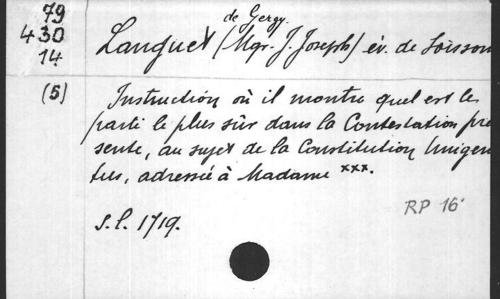 79
430
14
de Gergy.
Languet (Mgr. J. Joseph) év. de Soisson
(5)
Instruction où il montre quel est le
parti le plus sûr dans la Contestation pré
sente, au sujet de la Constitution Unigen
tus, adressée à Madame xxx.
RP 16
s.l. 1719.